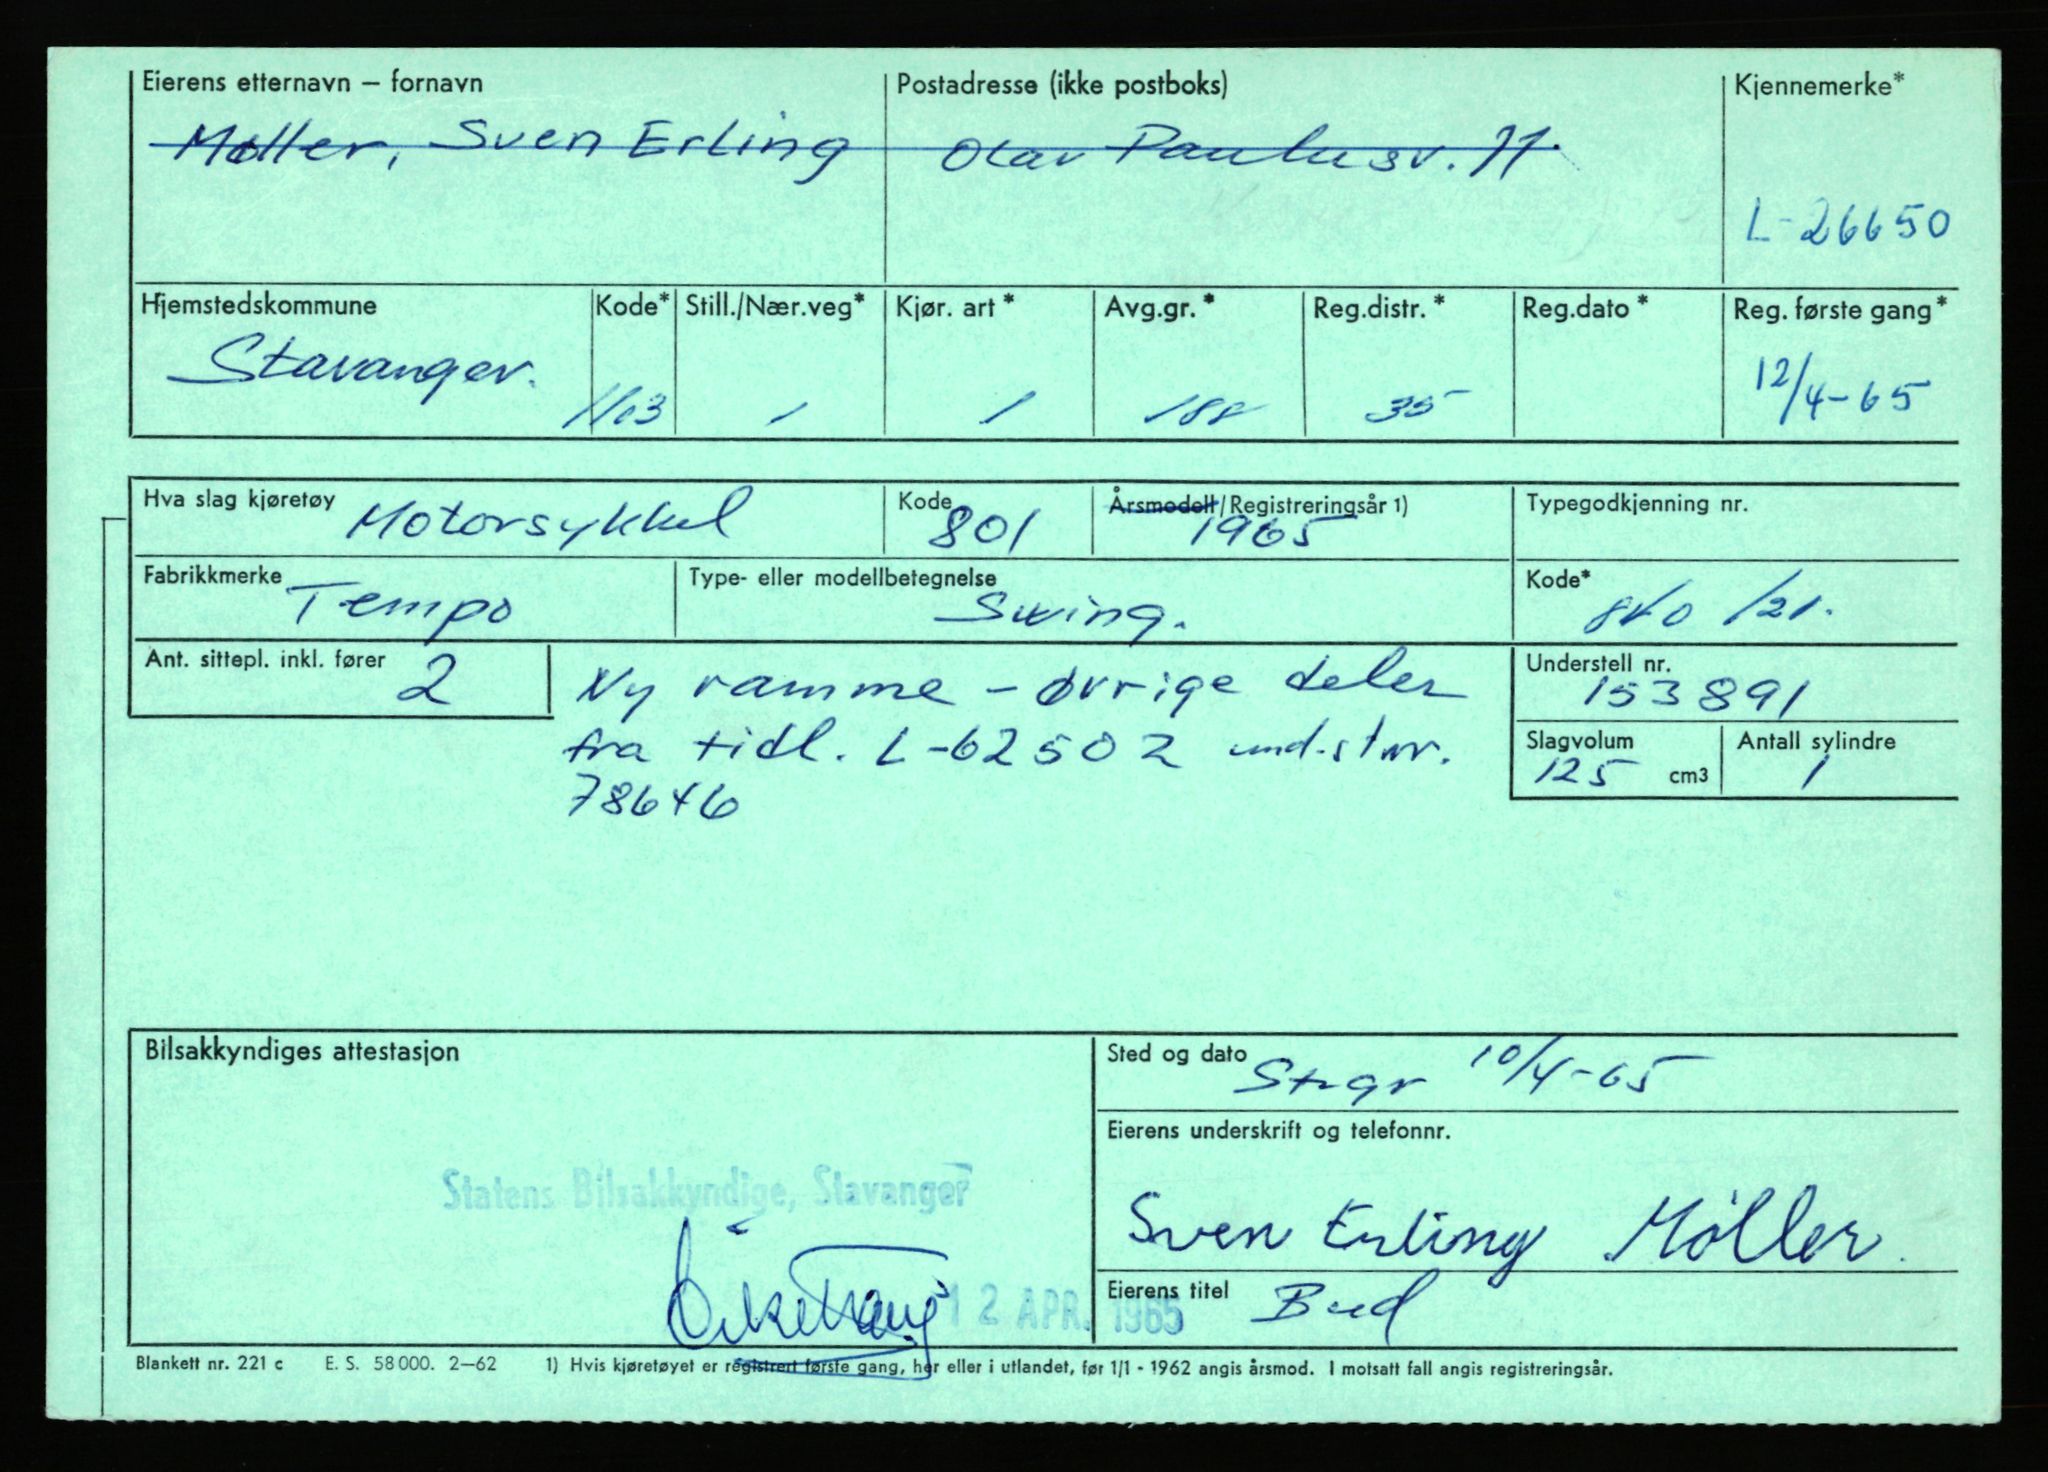 Eierens etternavn – fornavn
Postadresse (ikke postboks)
Kjennemerke*
Møller, Sven Erling
Olav Paulusv.
L-26650
Hjemstedskommune
Kode*
Still./Nær.veg*
Kjør. art*
Avg.gr.*
Reg.distr.*
Reg.dato*
Reg. første gang*
Stavanger.
1103
1
1
188
35
12/4-65
Hva slag kjøretøy
Motorsykkel
Kode
801
Årsmodell/Registreringsår 1)
1965
Typegodkjenning nr.
Fabrikkmerke
Tempo
Type- eller modellbetegnelse
Swing.
Kode*
/21.
Ant. sittepl. inkl. fører
2
Ny ramme – øvrige deler
fra tidl. L-62502 und.st.nr.
78646
Understell nr.
153891
Slagvolum
125 cm3
Antall sylindre
1
Bilsakkyndiges attestasjon
Statens Bilsakkyndige, Stavanger
12 APR. 1965
Sted og dato
Stvgr 10/4-65
Eierens underskrift og telefonnr.
Sven Erling Møller.
Eierens titel
Bud
Blankett nr. 221 c E. S. 58000. 2–62 1) Hvis kjøretøyet er registrert første gang, her eller i utlandet, før 1/1 - 1962 angis årsmod. I motsatt fall angis registreringsår.